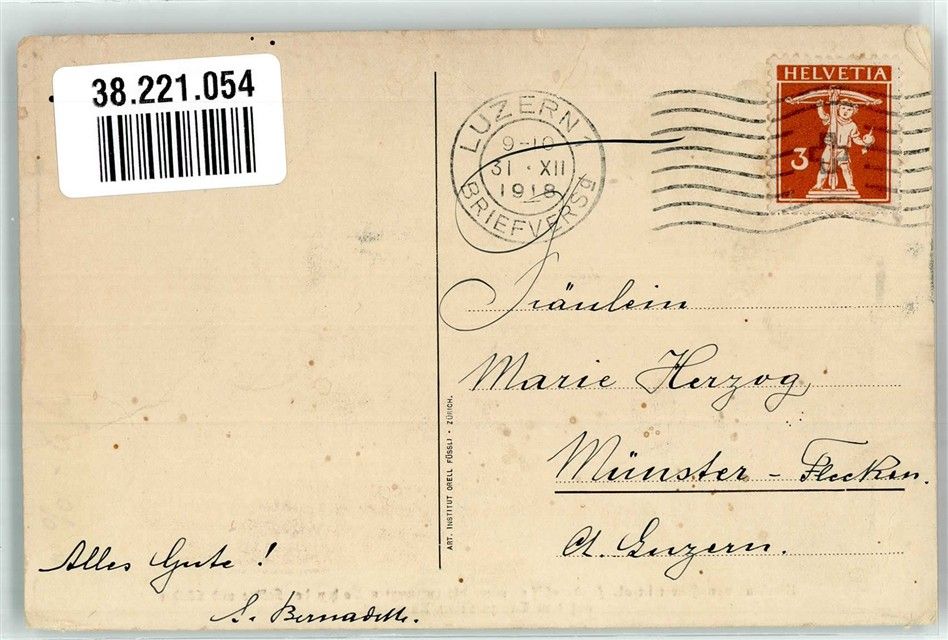 38.221.054
LUZERN 1
9-10
31 · XII
1918
BRIEFVERSD
HELVETIA
3
Fräulein
Marie Herzog
Münster - Flecken.
Ct. Luzern.
ART. INSTITUT ORELL FÜSSLI · ZÜRICH.
Alles Gute!
S. Bernadette.